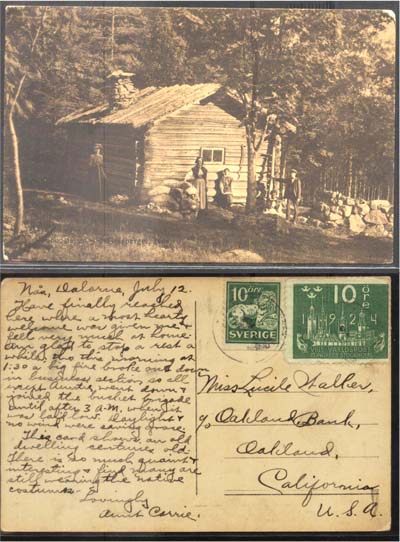 Nås, Dalarna, July 12.
Have finally reached
here where a most hearty
welcome was given me &
felt very much at home
am glad to stay a rest a
while tho this morning at
1:30 a big fire broke out down
in business section so all
except Auntie went down &
joined the bucket brigade
until after 3 A.M. when it
was half low. Daylight &
no wind were saving grace.
This card shows an old
dwelling centuries old.
There is so much quaint &
interesting & find many are
still wearing the native
costumes.
Lovingly
Aunt Carrie.
10 ÖRE
SVERIGE
10 öre
1924
Miss Lucile Walker,
c/o Oakland Bank,
Oakland,
California
U.S.A.